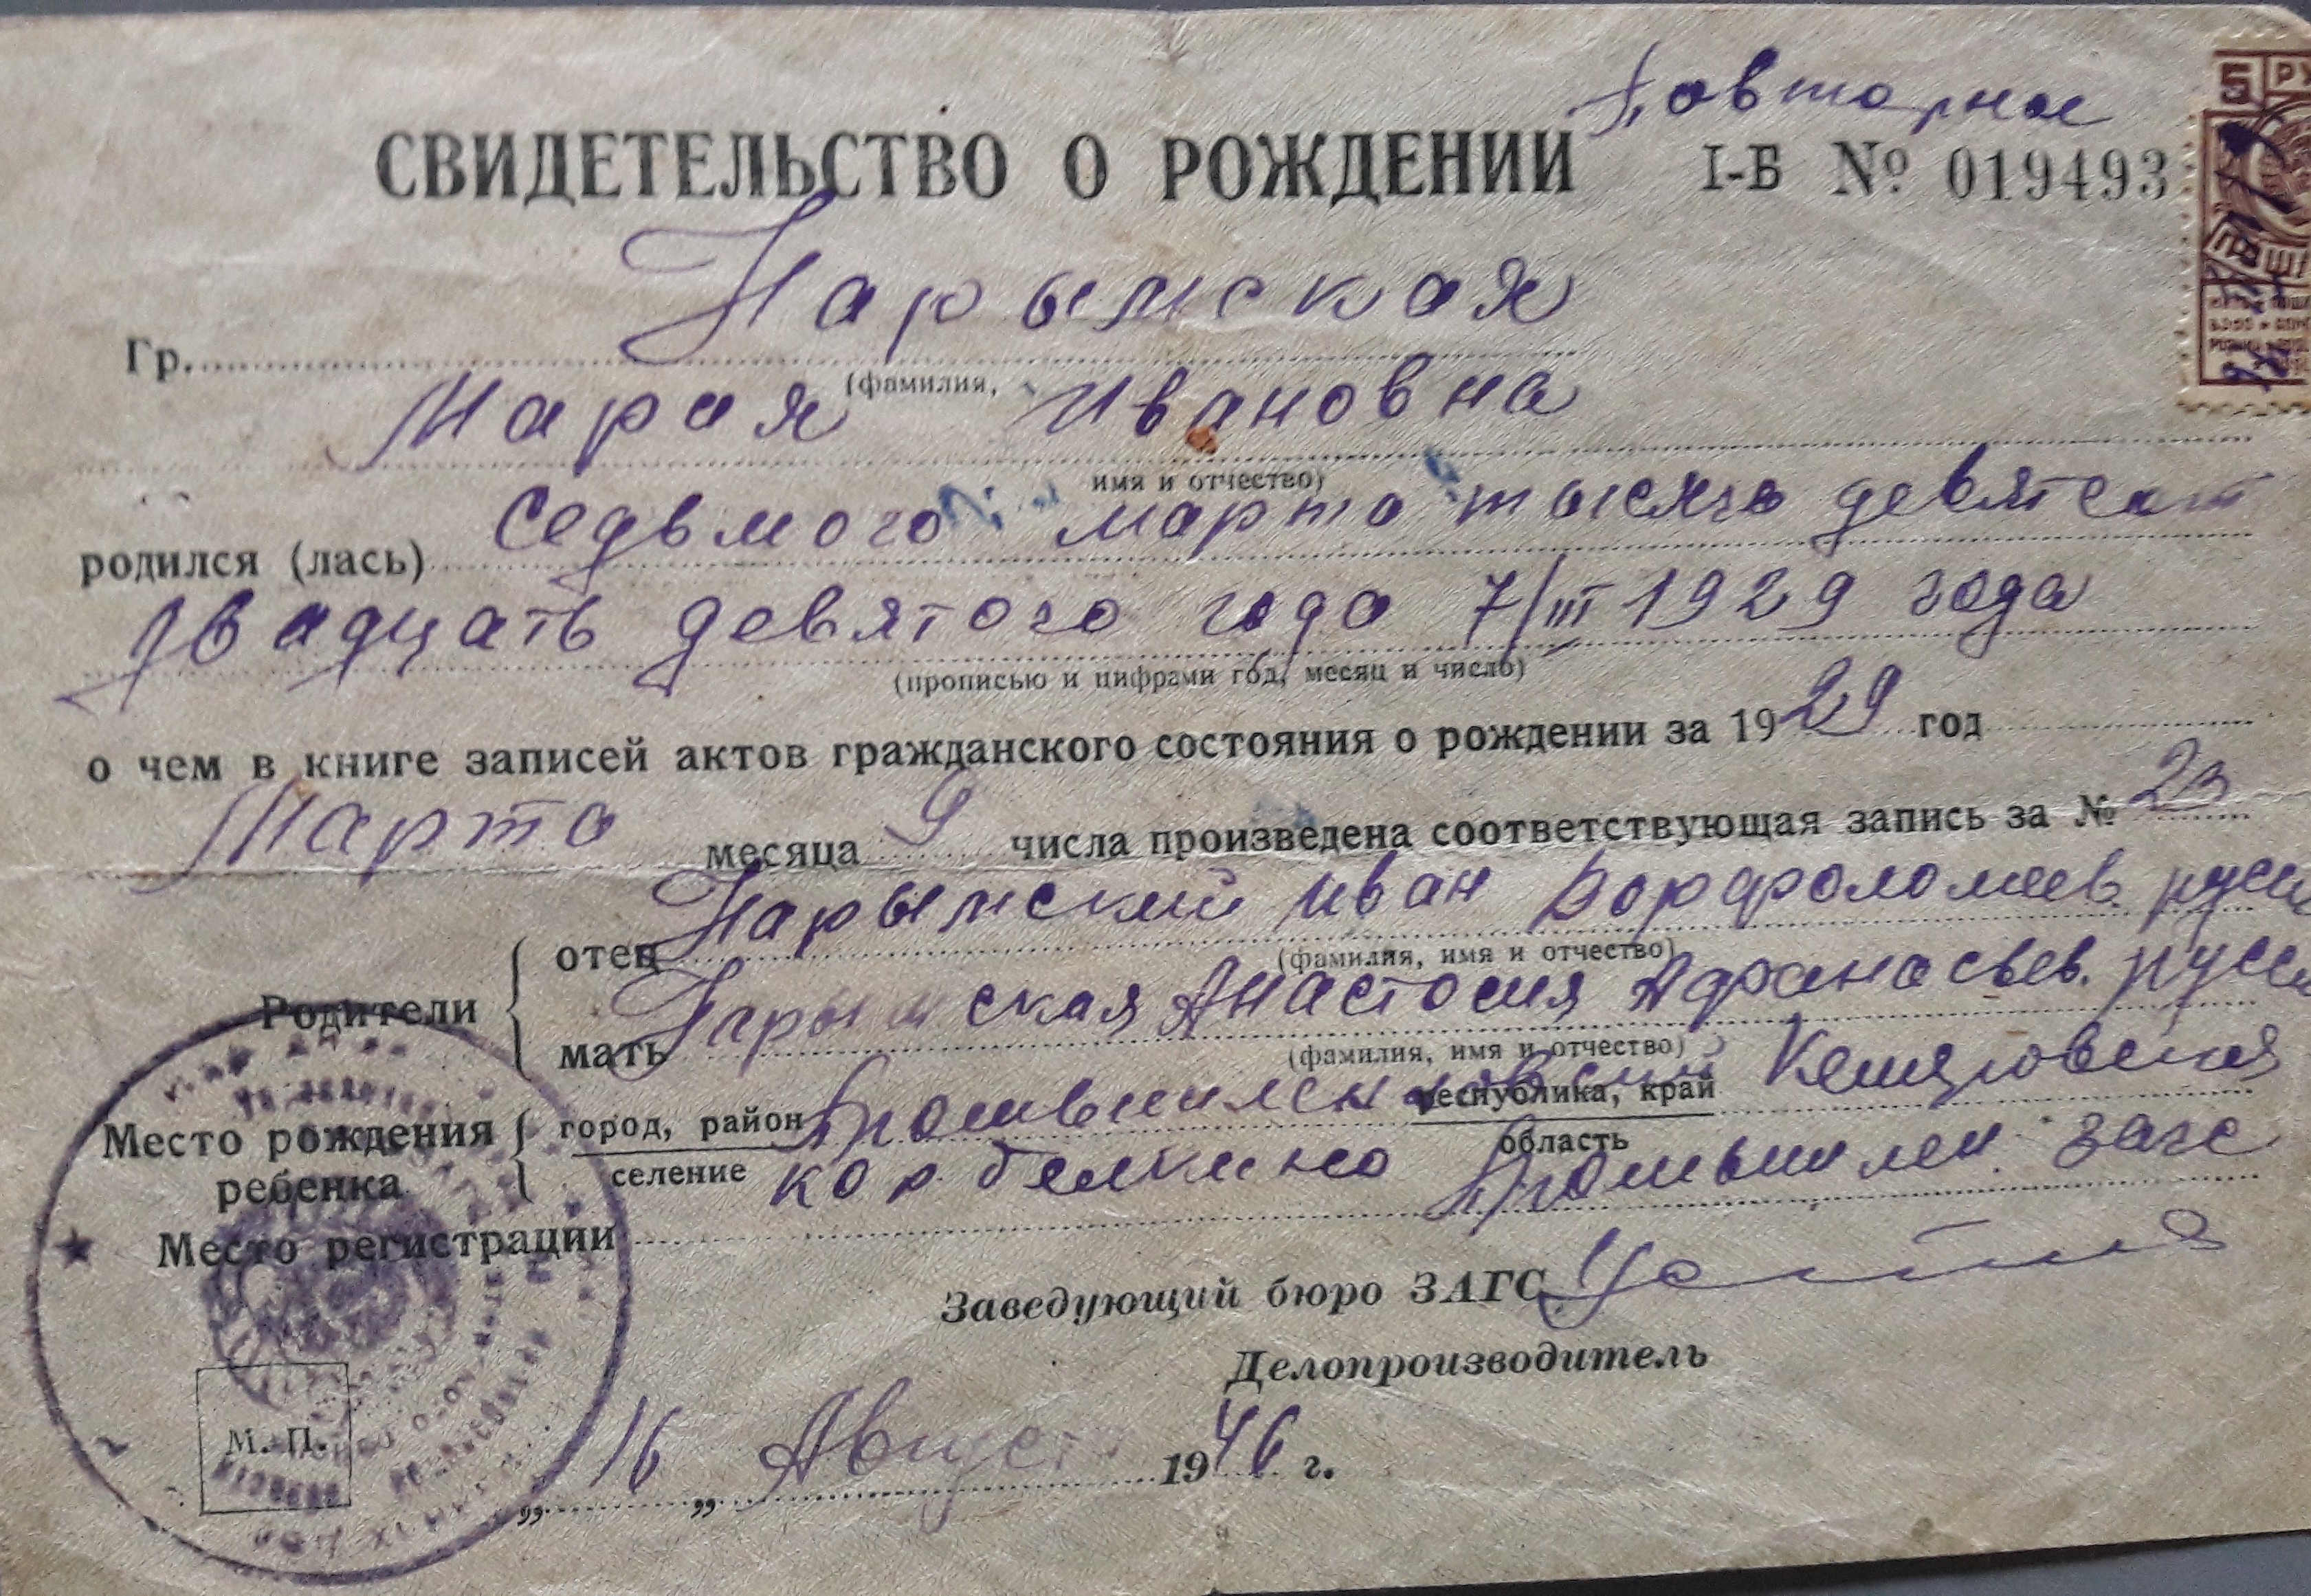 Повторное
СВИДЕТЕЛЬСТВО О РОЖДЕНИИ I-Б № 019493
5 РУ
Гр. Нарымская
(фамилия,
Мария Ивановна
имя и отчество)
родился (лась) Седьмого марта тысяча девятсот
двадцать девятого года 7/III 1929 года
(прописью и цифрами год, месяц и число)
о чем в книге записей актов гражданского состояния о рождении за 1929 год
Марта месяца 9 числа произведена соответствующая запись за № 23
Родители
отец Нарымский Иван Ворфоломеев. русск
(фамилия, имя и отчество)
мать Нарымская Анастосия Афанасьев. русск
(фамилия, имя и отчество)
Место рождения ребенка
город, район Промышленновский республика, край Кемеровская
селение Корбелкино область
Место регистрации Промышлен. загс
Заведующий бюро ЗАГС
Делопроизводитель
М. П.
„ 16 „ Август 1946 г.